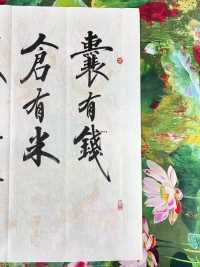 囊有錢
倉有米